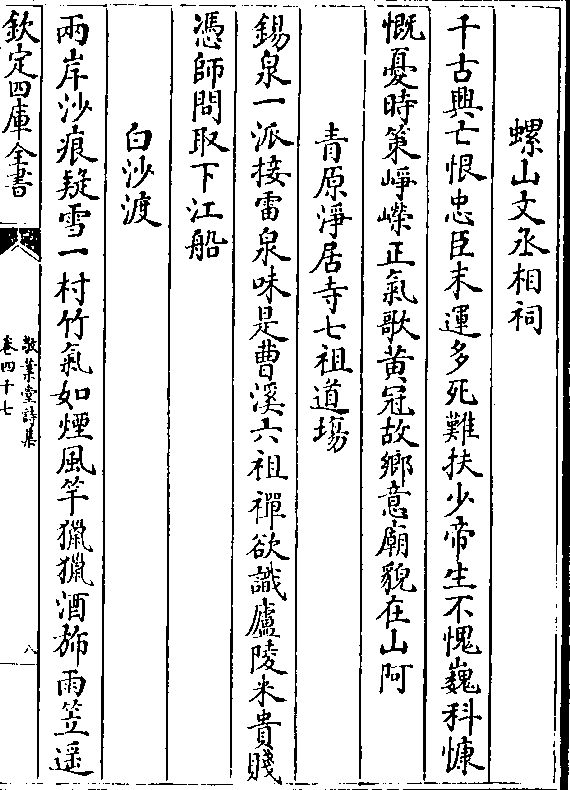 螺山文丞相祠
千古興亡恨忠臣末運多死難扶少帝生不愧巍科慷
慨憂時策崢嶸正氣歌黄冠故鄉意廟貌在山阿
青原淨居寺七祖道塲
錫泉一派接雷泉味是曹溪六祖禪欲識廬陵米貴賤
憑師問取下江船
白沙渡
兩岸沙痕疑雪一村竹氣如煙風竿獵獵酒斾雨笠遥
欽定四庫全書
敬業堂詩集
卷四十七
八